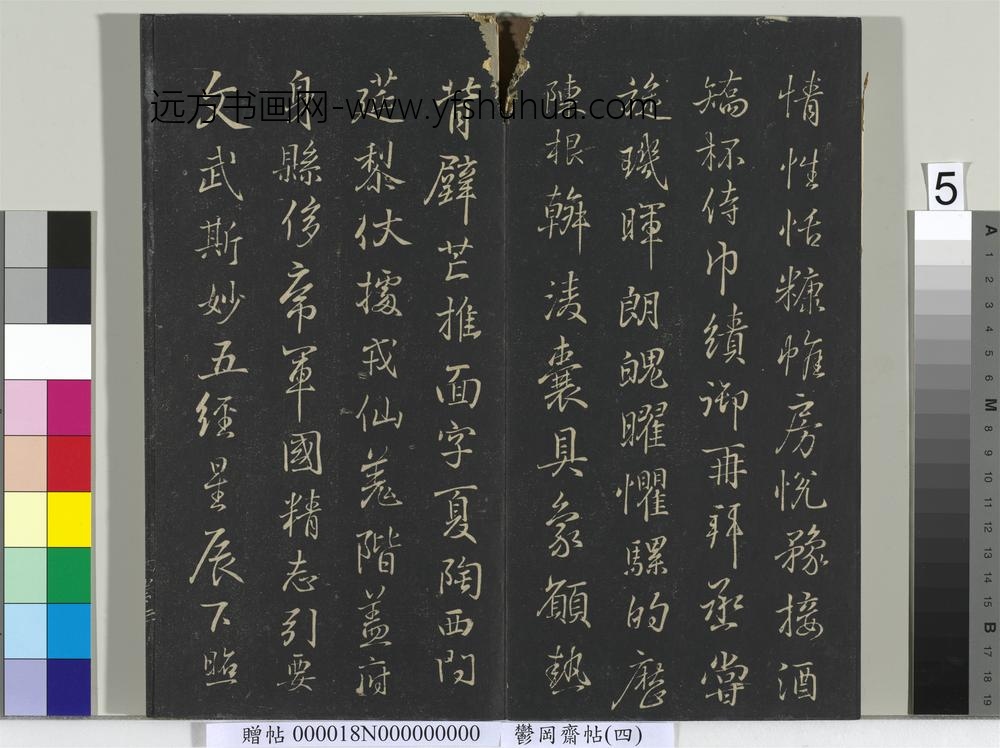 情性恬糠帷房悅豫接酒
矯杯侍巾績御再拜丞嘗
璇璣暉朗魄曜懼騾的歷
陳根翰淩囊具象顧熱
背璧芒推面字夏陶西門
莚黎伏據戎仙羌階蓋府
身縣侈帝軍國精志引要
文武斯妙五經星辰下照
远方书画网-www.yfshuhua.com
5
A
1
2
3
4
5
6
M
8
9
10
11
12
13
14
15
B
17
18
19
贈帖 000018N000000000
鬱岡齋帖(四)